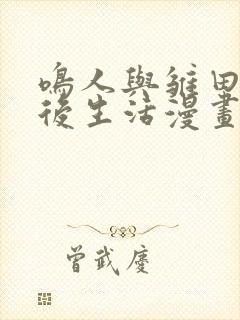 鳴人與雛田
後生活漫畫
曾武慶